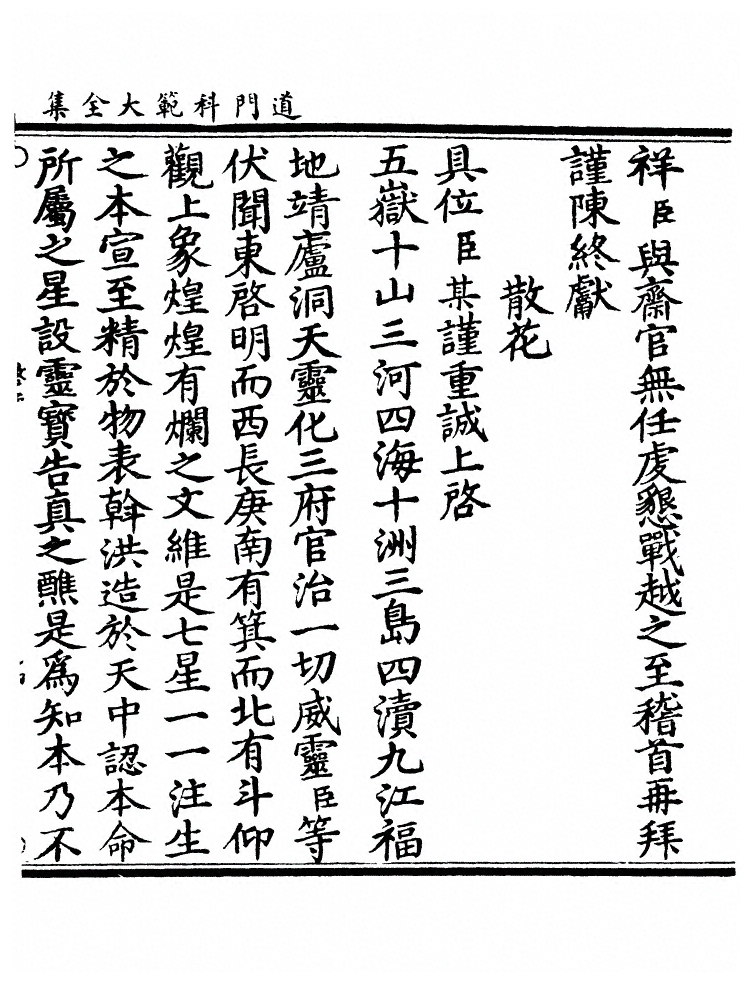 道門科範大全集
祥臣與齋官無任虔懇戰越之至稽首再拜
謹陳終獻
散花
具位臣某謹重誠上啓
五嶽十山三河四海十洲三島四瀆九江福
地靖廬洞天靈化三府官治一切威靈臣等
伏聞東啓明而西長庚南有箕而北有斗仰
觀上象煌煌有爛之文維是七星一一注生
之本宣至精於物表斡洪造於天中認本命
所屬之星設靈寳告真之醮是爲知本乃不